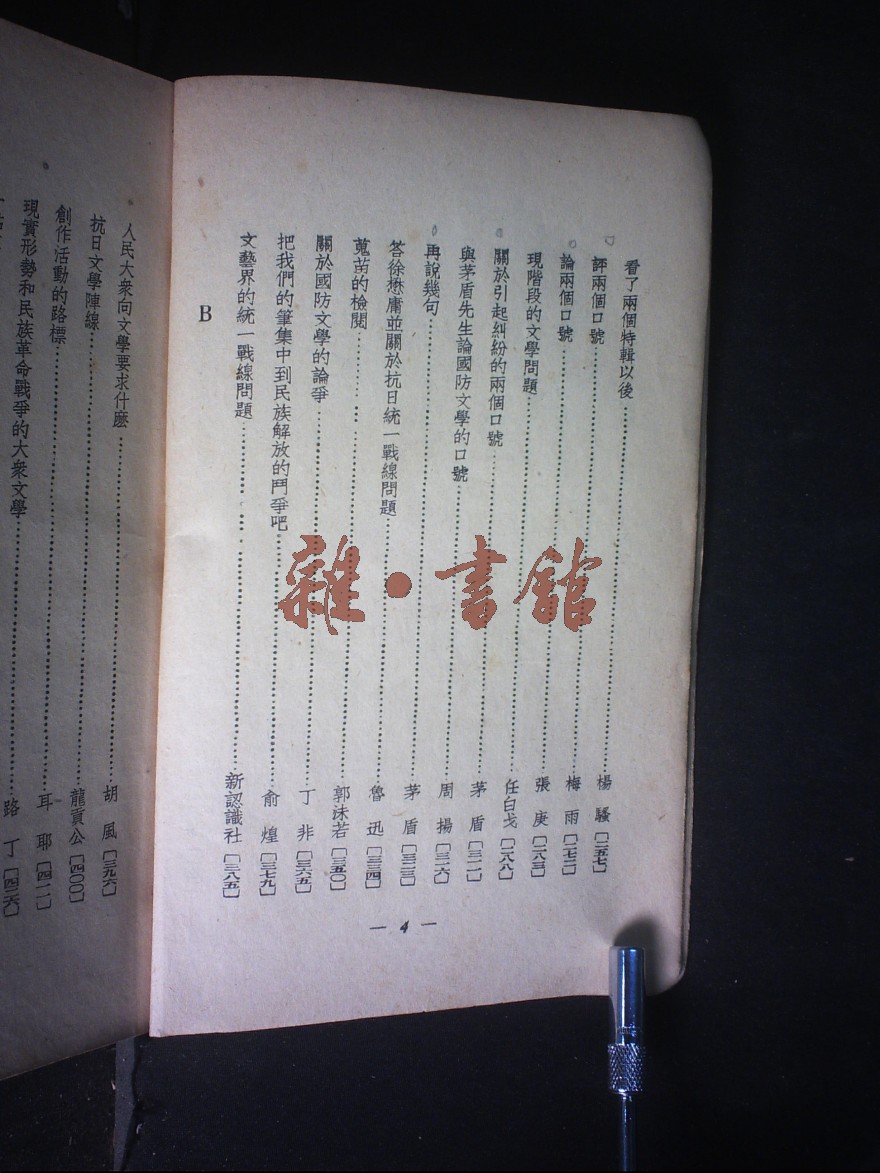 看了兩個特輯以後……楊 騷〔二五七〕
評兩個口號……梅 雨〔二七二〕
論兩個口號……張 庚〔二八三〕
現階段的文學問題……任白戈〔二八八〕
關於引起糾紛的兩個口號……茅 盾〔三一一〕
與茅盾先生論國防文學的口號……周 揚〔三一六〕
再說幾句……茅 盾〔三二三〕
答徐懋庸並關於抗日統一戰線問題……魯 迅〔三三四〕
蒐苗的檢閱……郭沫若〔三五〇〕
關於國防文學的論爭……丁 非〔三六五〕
把我們的筆集中到民族解放的鬥爭吧……俞 煌〔三七九〕
文藝界的統一戰線問題……新認識社〔三八五〕
B
— 4 —
人民大衆向文學要求什麽……胡 風〔三九六〕
抗日文學陣線……龍貢公〔四〇〇〕
創作活動的路標……耳 耶〔四一一〕
現實形勢和民族革命戰爭的大衆文學……路 丁〔四二六〕
雜·書館